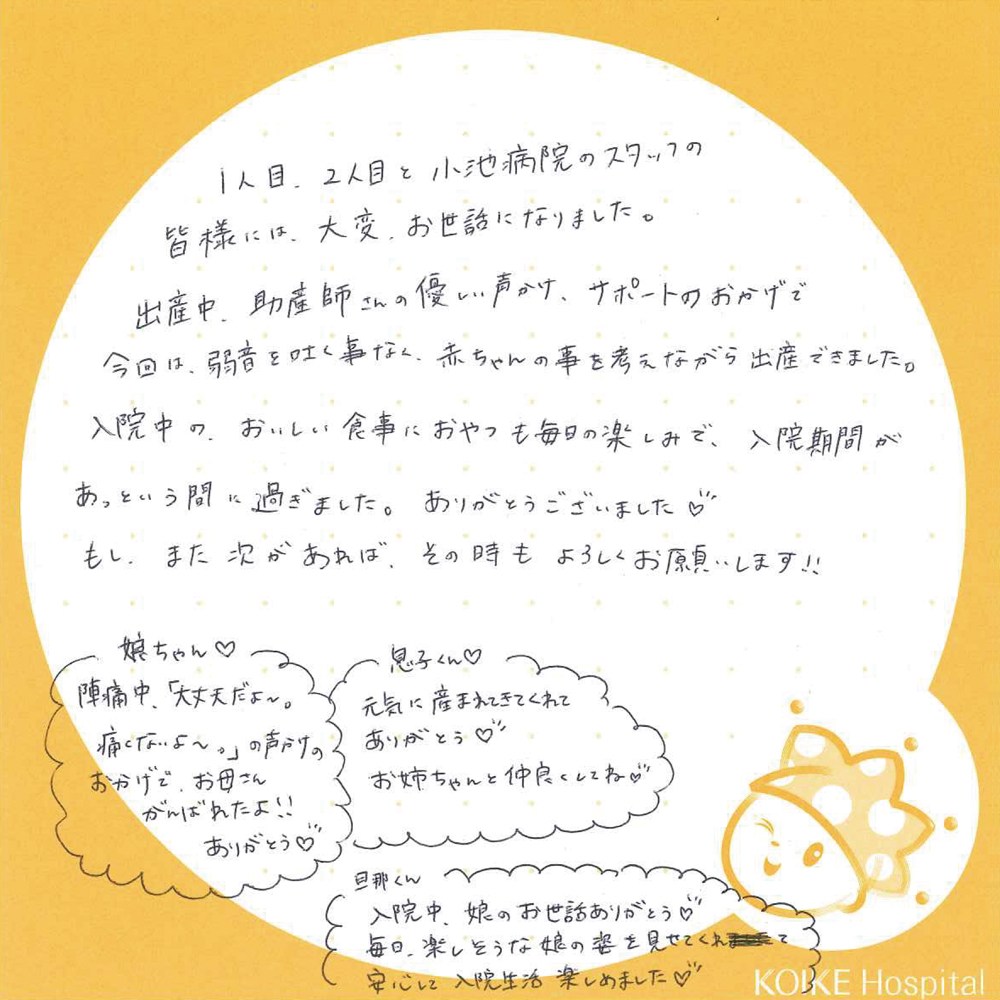 1人目、2人目と小池病院のスタッフの
皆様には、大変、お世話になりました。
出産中、助産師さんの優しい声かけ、サポートのおかげで
今回は、弱音を吐く事なく、赤ちゃんの事を考えながら出産できました。
入院中の、おいしい食事におやつも毎日の楽しみで、入院期間が
あっという間に過ぎました。ありがとうございました♡
もし、また次があれば、その時もよろしくお願いします!!
娘ちゃん♡
陣痛中、「大丈夫だよ〜。
痛くないよ〜。」の声かけの
おかげで、お母さん
がんばれたよ!!
ありがとう♡
息子くん♡
元気に産まれてきてくれて
ありがとう♡
お姉ちゃんと仲良くしてね♡
旦那くん
入院中、娘のお世話ありがとう♡
毎日、楽しそうな娘の姿を見せてくれて
安心して入院生活楽しめました♡
KOIKE Hospital